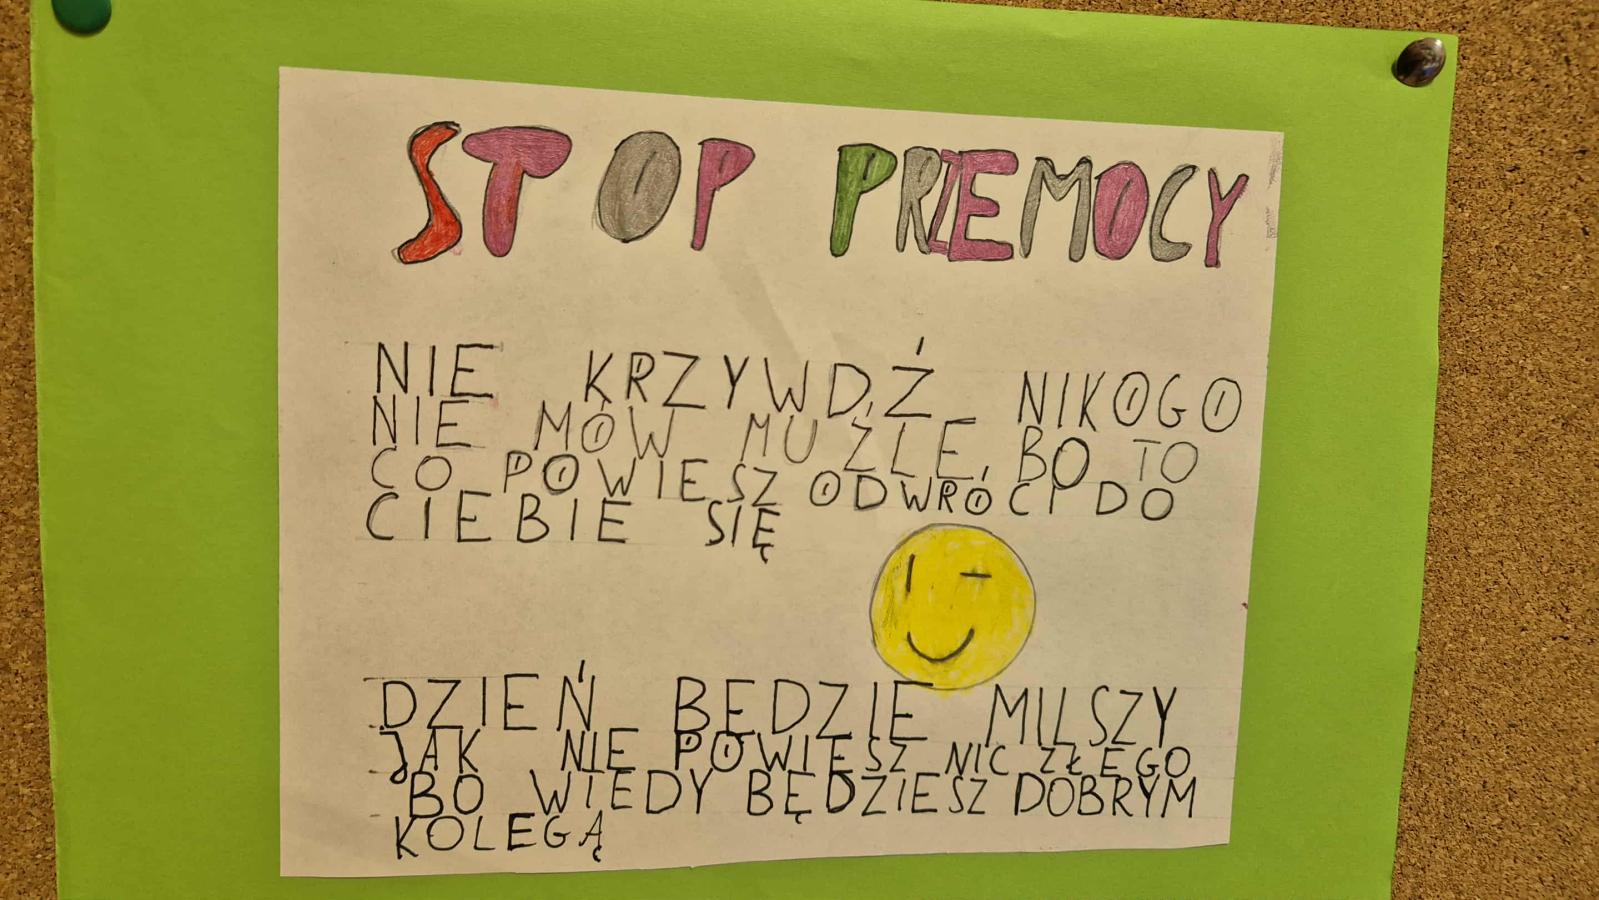 STOP PRZEMOCY
NIE KRZYWDŹ NIKOGO
NIE MÓW MU ŹLE, BO TO
CO POWIESZ ODWRÓCI DO
CIEBIE SIĘ
DZIEŃ BĘDZIE MILSZY
JAK NIE POWIESZ NIC ZŁEGO
BO WTEDY BĘDZIESZ DOBRYM
KOLEGĄ